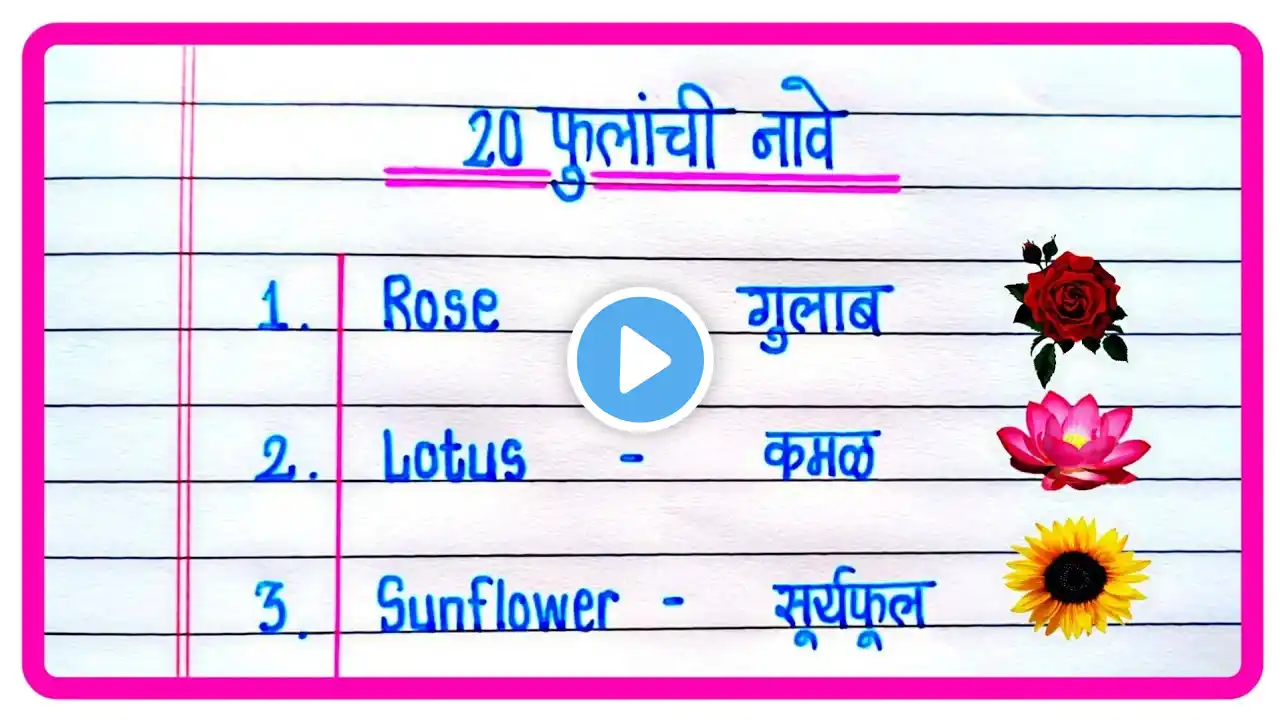 20 फुलांची नावे
1. Rose गुलाब
2. Lotus - कमळ
3. Sunflower - सूर्यफूल